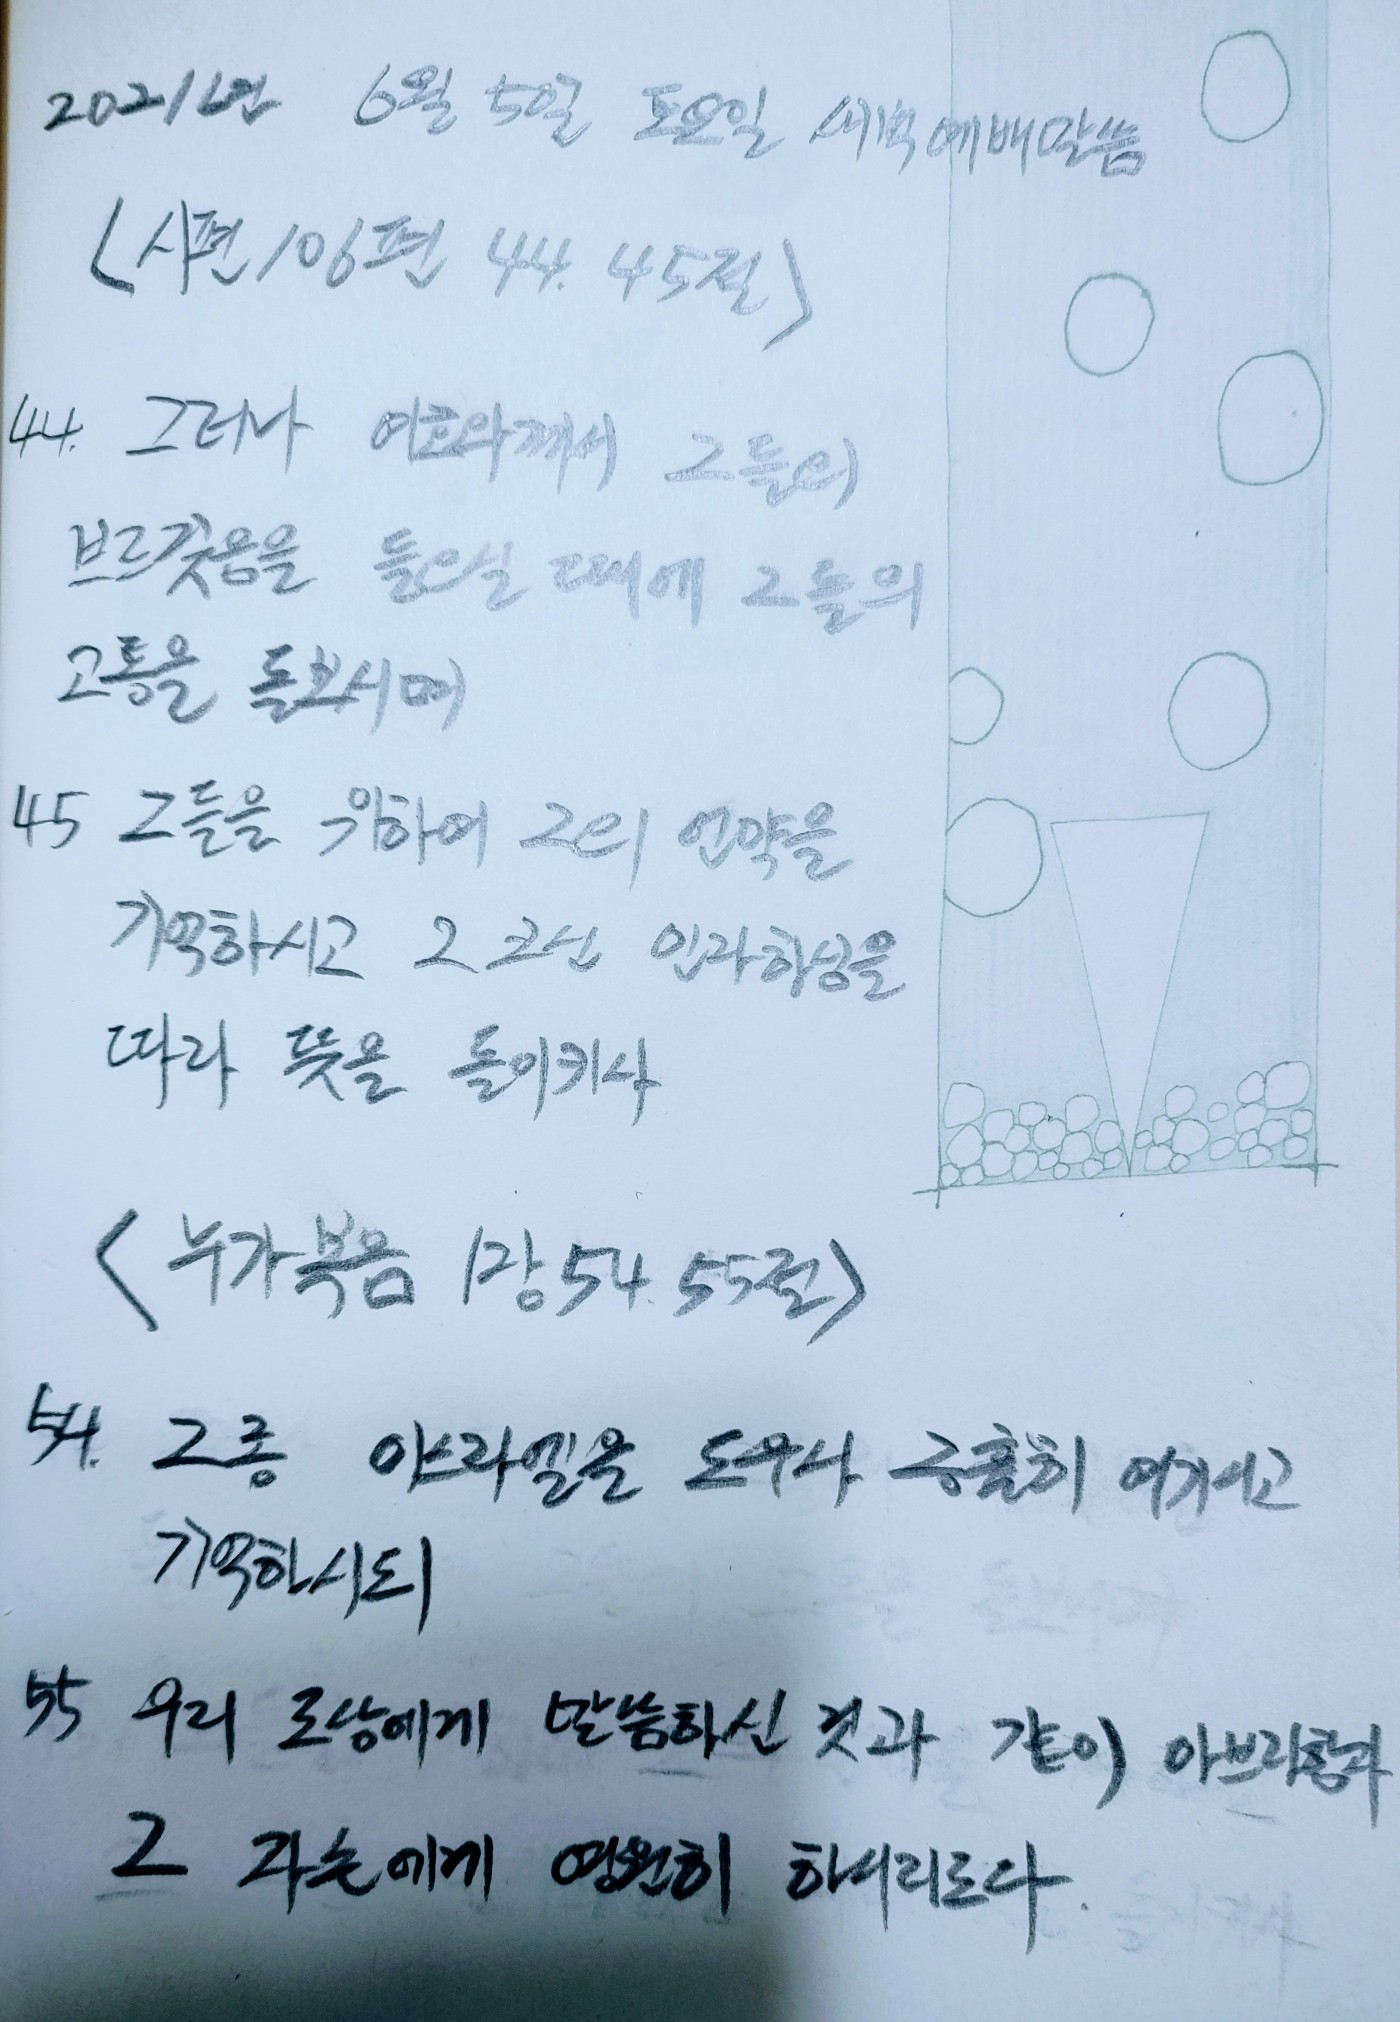 2021년 6월 5일 토요일 새벽예배말씀
<시편 106편 44. 45절>
44. 그러나 여호와께서 그들의
부르짖음을 들으실 때에 그들의
고통을 돌보시며
45 그들을 위하여 그의 언약을
기억하시고 그 크신 인자하심을
따라 뜻을 돌이키사
<누가복음 1장 54. 55절>
54. 그 종 이스라엘을 도우사 긍휼히 여기시고
기억하시되
55 우리 조상에게 말씀하신 것과 같이 아브라함과
그 자손에게 영원히 하시리로다.